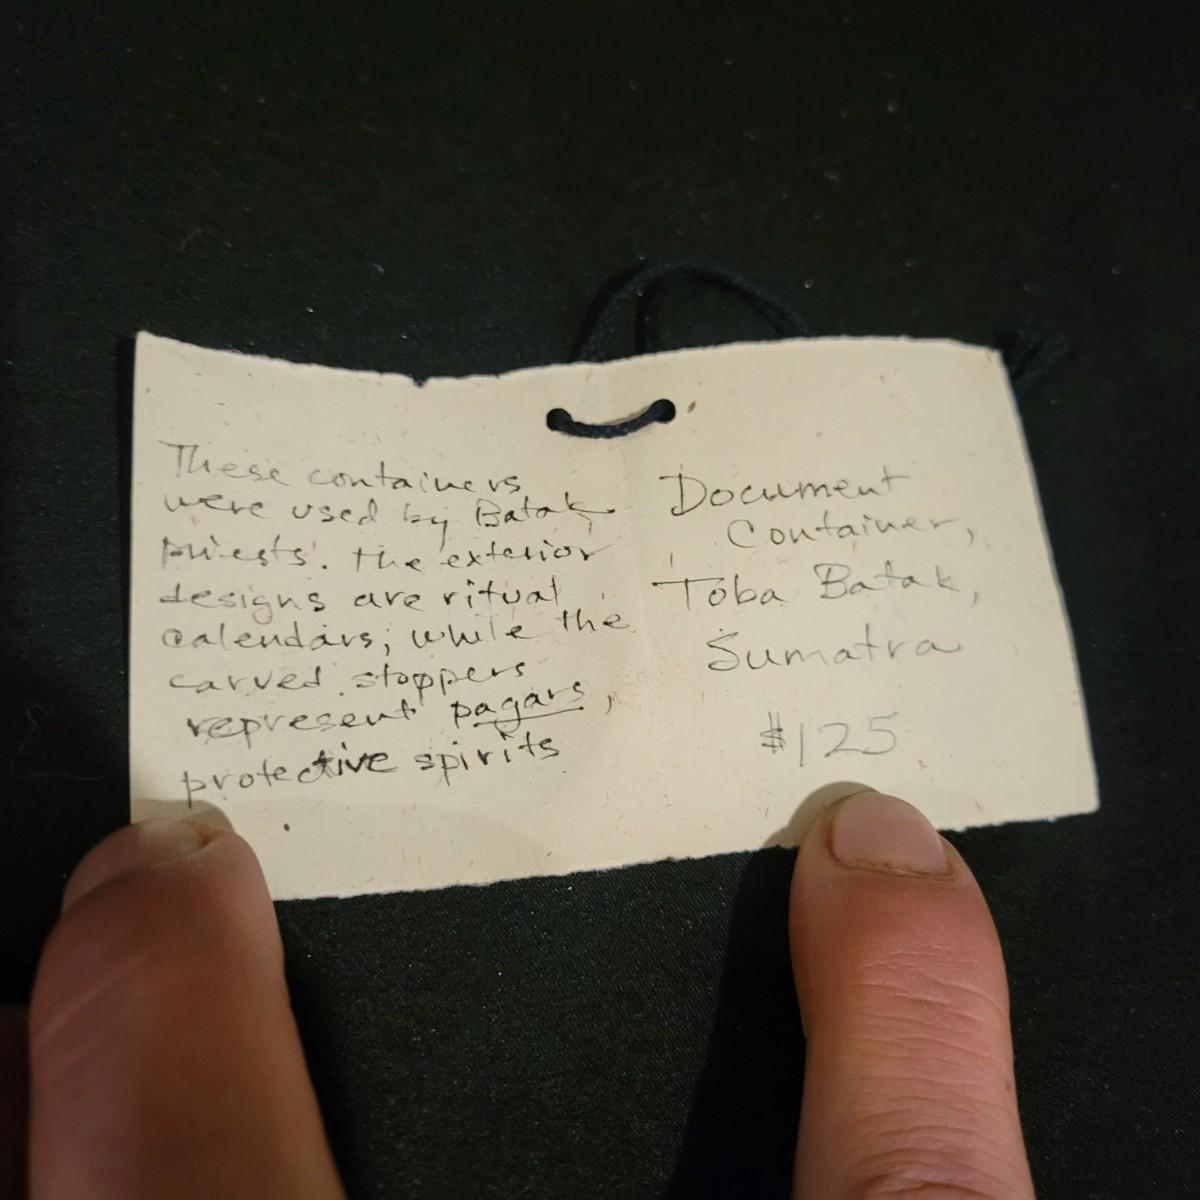 These containers
were used by Batak
priests. The exterior
designs are ritual
calendars, while the
carved stoppers
represent pagars,
protective spirits
Document
Container,
Toba Batak,
Sumatra
$125